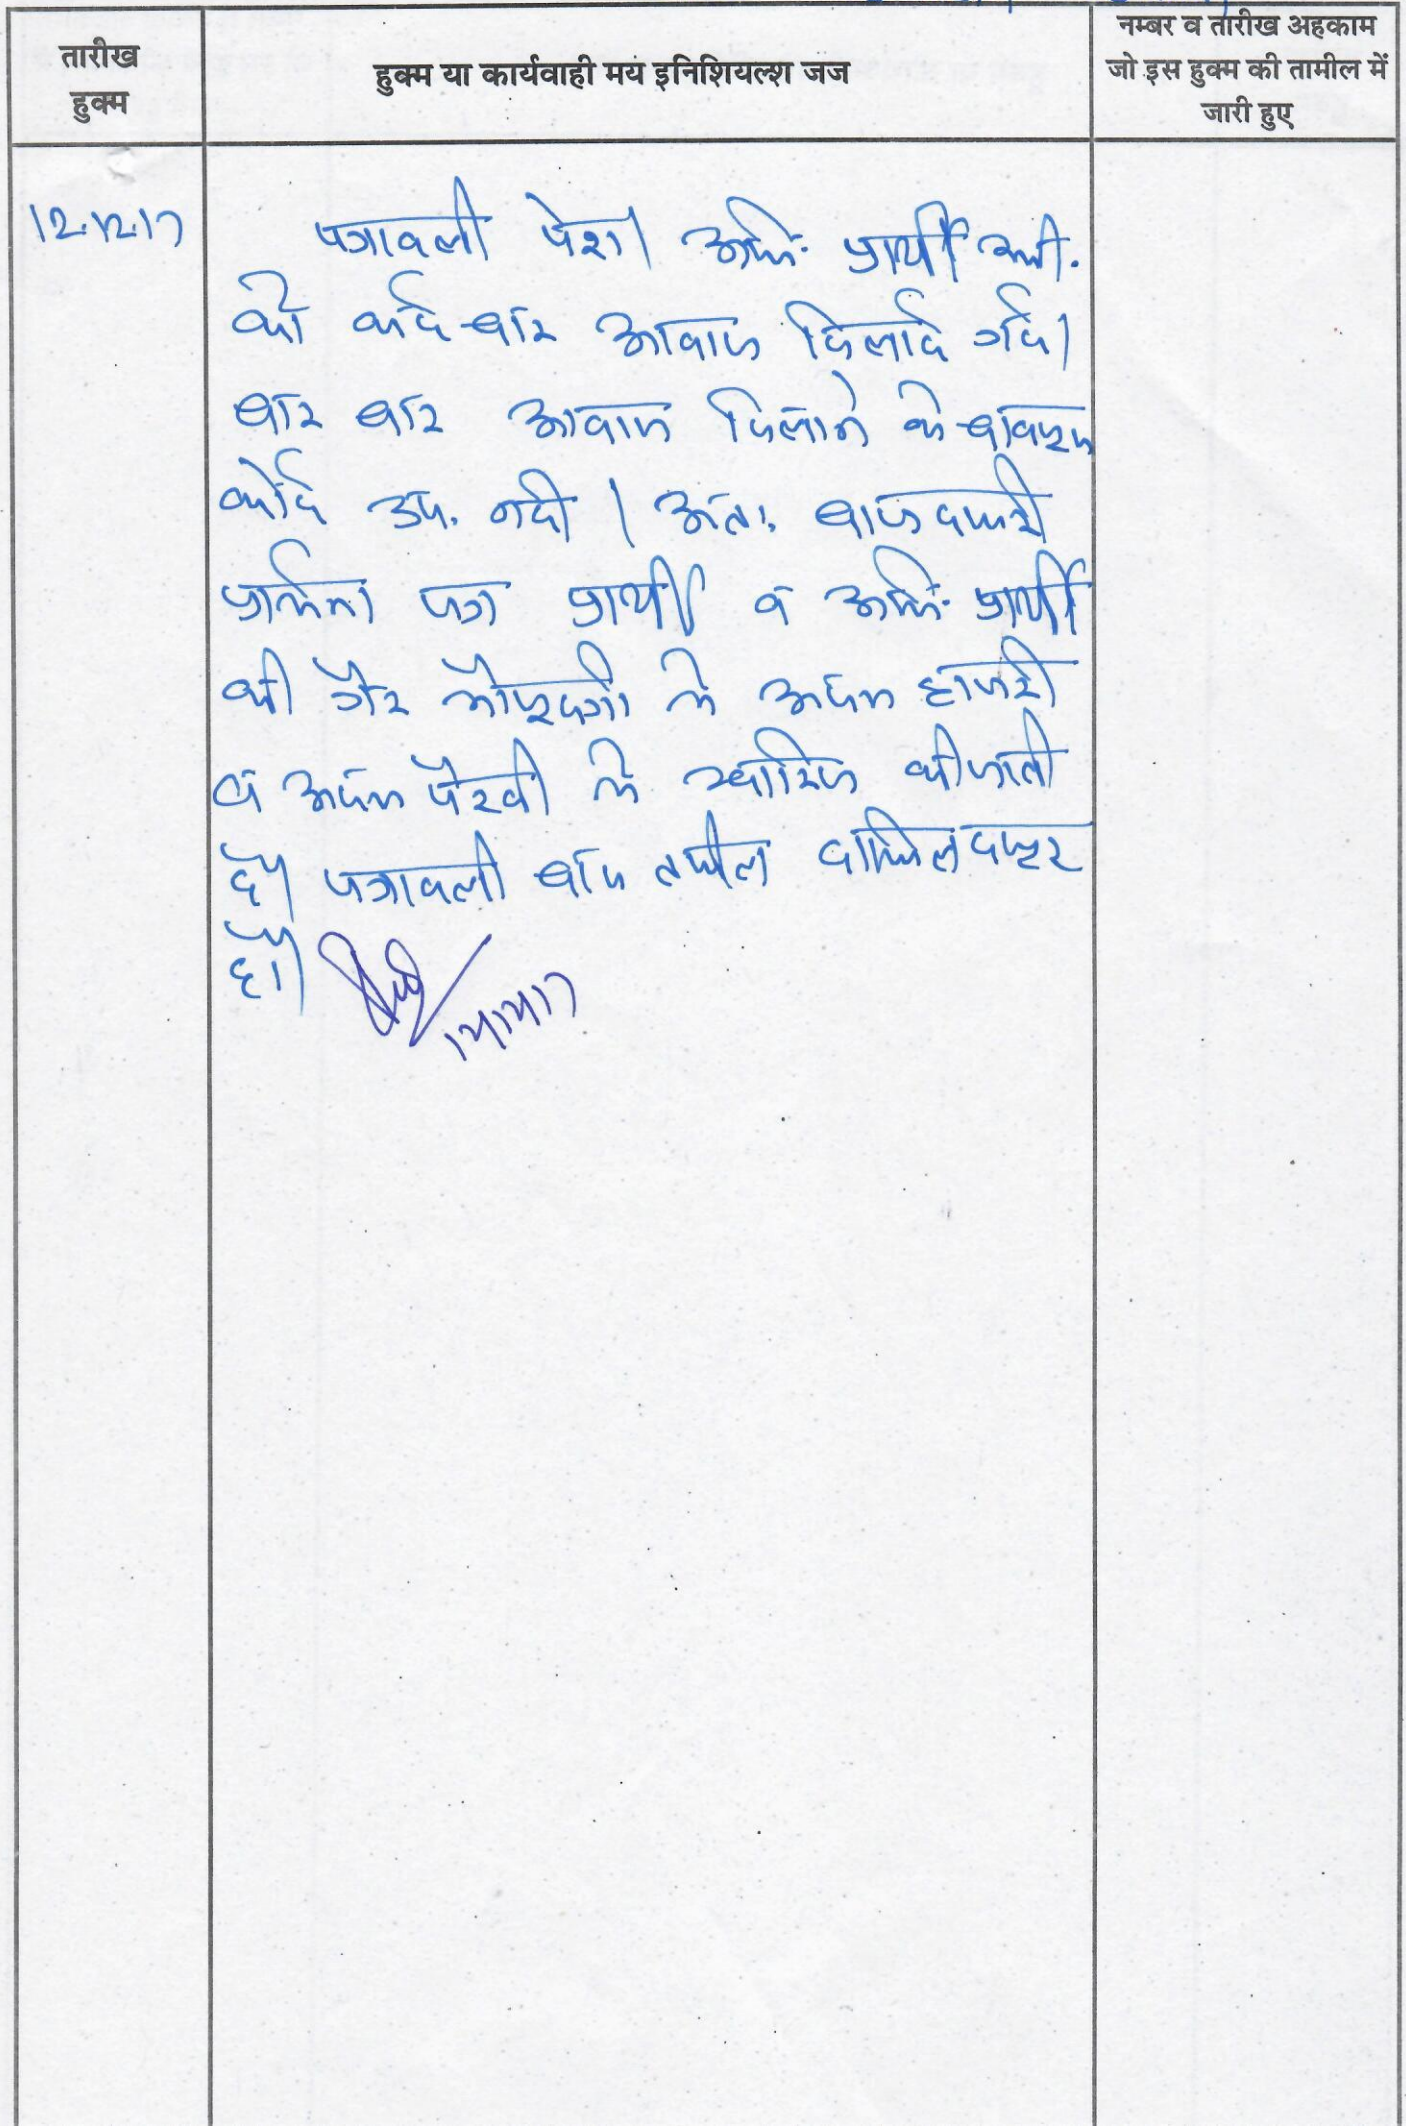 तारीख
हुक्म
हुक्म या कार्यवाही मय इनिशियल्श जज
नम्बर व तारीख अहकाम
जो इस हुक्म की तामील में
जारी हुए
12.12.17
पत्रावली पेश। अभि. प्रार्थी
को कई बार आवाज दिलाई गई।
बार बार आवाज दिलाने के बावजूद
कोई उप. नही। अतः बाजदायरी
प्रार्थना पत्र प्रार्थी व अभि. प्रार्थी
की गैर मौजूदगी में अदम हाजरी
व अदम पैरवी में खारिज की जाती
है। पत्रावली बाद तकमील दाखिल दफ्तर
हो।